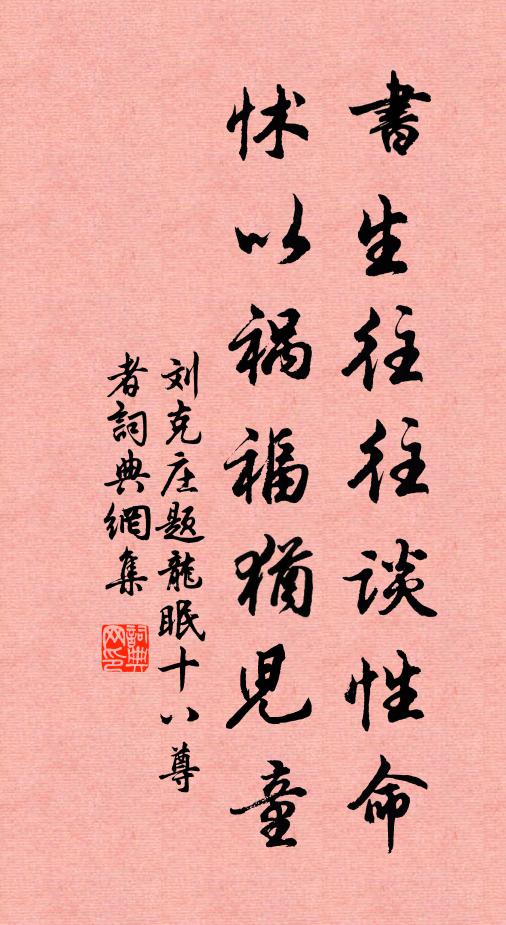 書生往往談性命
怵以禍福猶児童
刘克庄题龍眠十八尊
者詞典網集
詞典网印